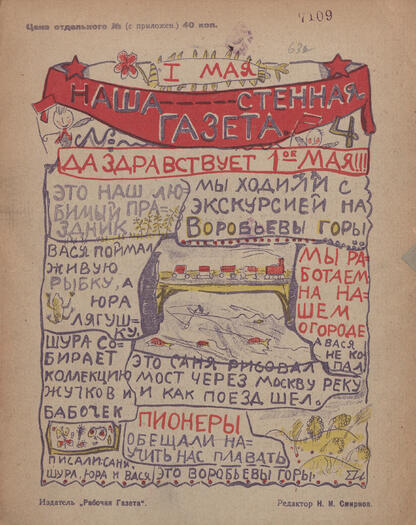 Цена отдельного № (с прилож.) 40 коп.
7109
63а
I МАЯ
НАША СТЕННАЯ
ГАЗЕТА
№ 4
ДА ЗДРАВСТВУЕТ 1ОЕ МАЯ!!!
ЭТО НАШ ЛЮ=
БИМЫЙ ПРА=
ЗДНИК
МЫ ХОДИЛИ С
ЭКСКУРСИЕЙ НА
ВОРОБЬЕВЫ ГОРЫ
ВАСЯ ПОЙМАЛ
ЖИВУЮ
РЫБКУ, А
ЮРА
ЛЯГУШ=
КУ.
МЫ РА=
БОТАЕМ
НА НА=
ШЕМ
ОГОРОДЕ
А ВАСЯ
НЕ КО=
ПАЛ
ШУРА СО=
БИРАЕТ
КОЛЛЕКЦИЮ
ЖУЧКОВ И
БАБОЧЕК
ЭТО САНЯ РИСОВАЛ
МОСТ ЧЕРЕЗ МОСКВУ РЕКУ
И КАК ПОЕЗД ШЕЛ.
ПИОНЕРЫ
ОБЕЩАЛИ НА=
УЧИТЬ НАС ПЛАВАТЬ
ПИСАЛИ: САНЯ,
ШУРА, ЮРА И ВАСЯ
ЭТО ВОРОБЬЕВЫ ГОРЫ.
Издатель „Рабочая Газета".
Редактор Н. И. Смирнов.